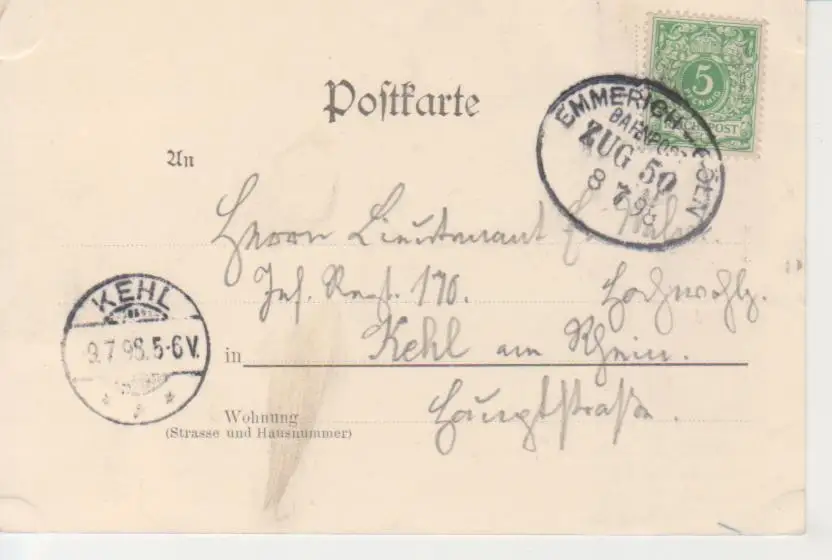 5
PFENNIG
REICHSPOST
Postkarte
EMMERICH - CÖLN
BAHNPOST
ZUG 50
8 7 98
An
Herrn Lieutenant
Inf. Regt. 170. Hochwohlg.
KEHL
9.7.98.5-6V.
in Kehl am Rhein.
Wohnung Hauptstraße.
(Strasse und Hausnummer)